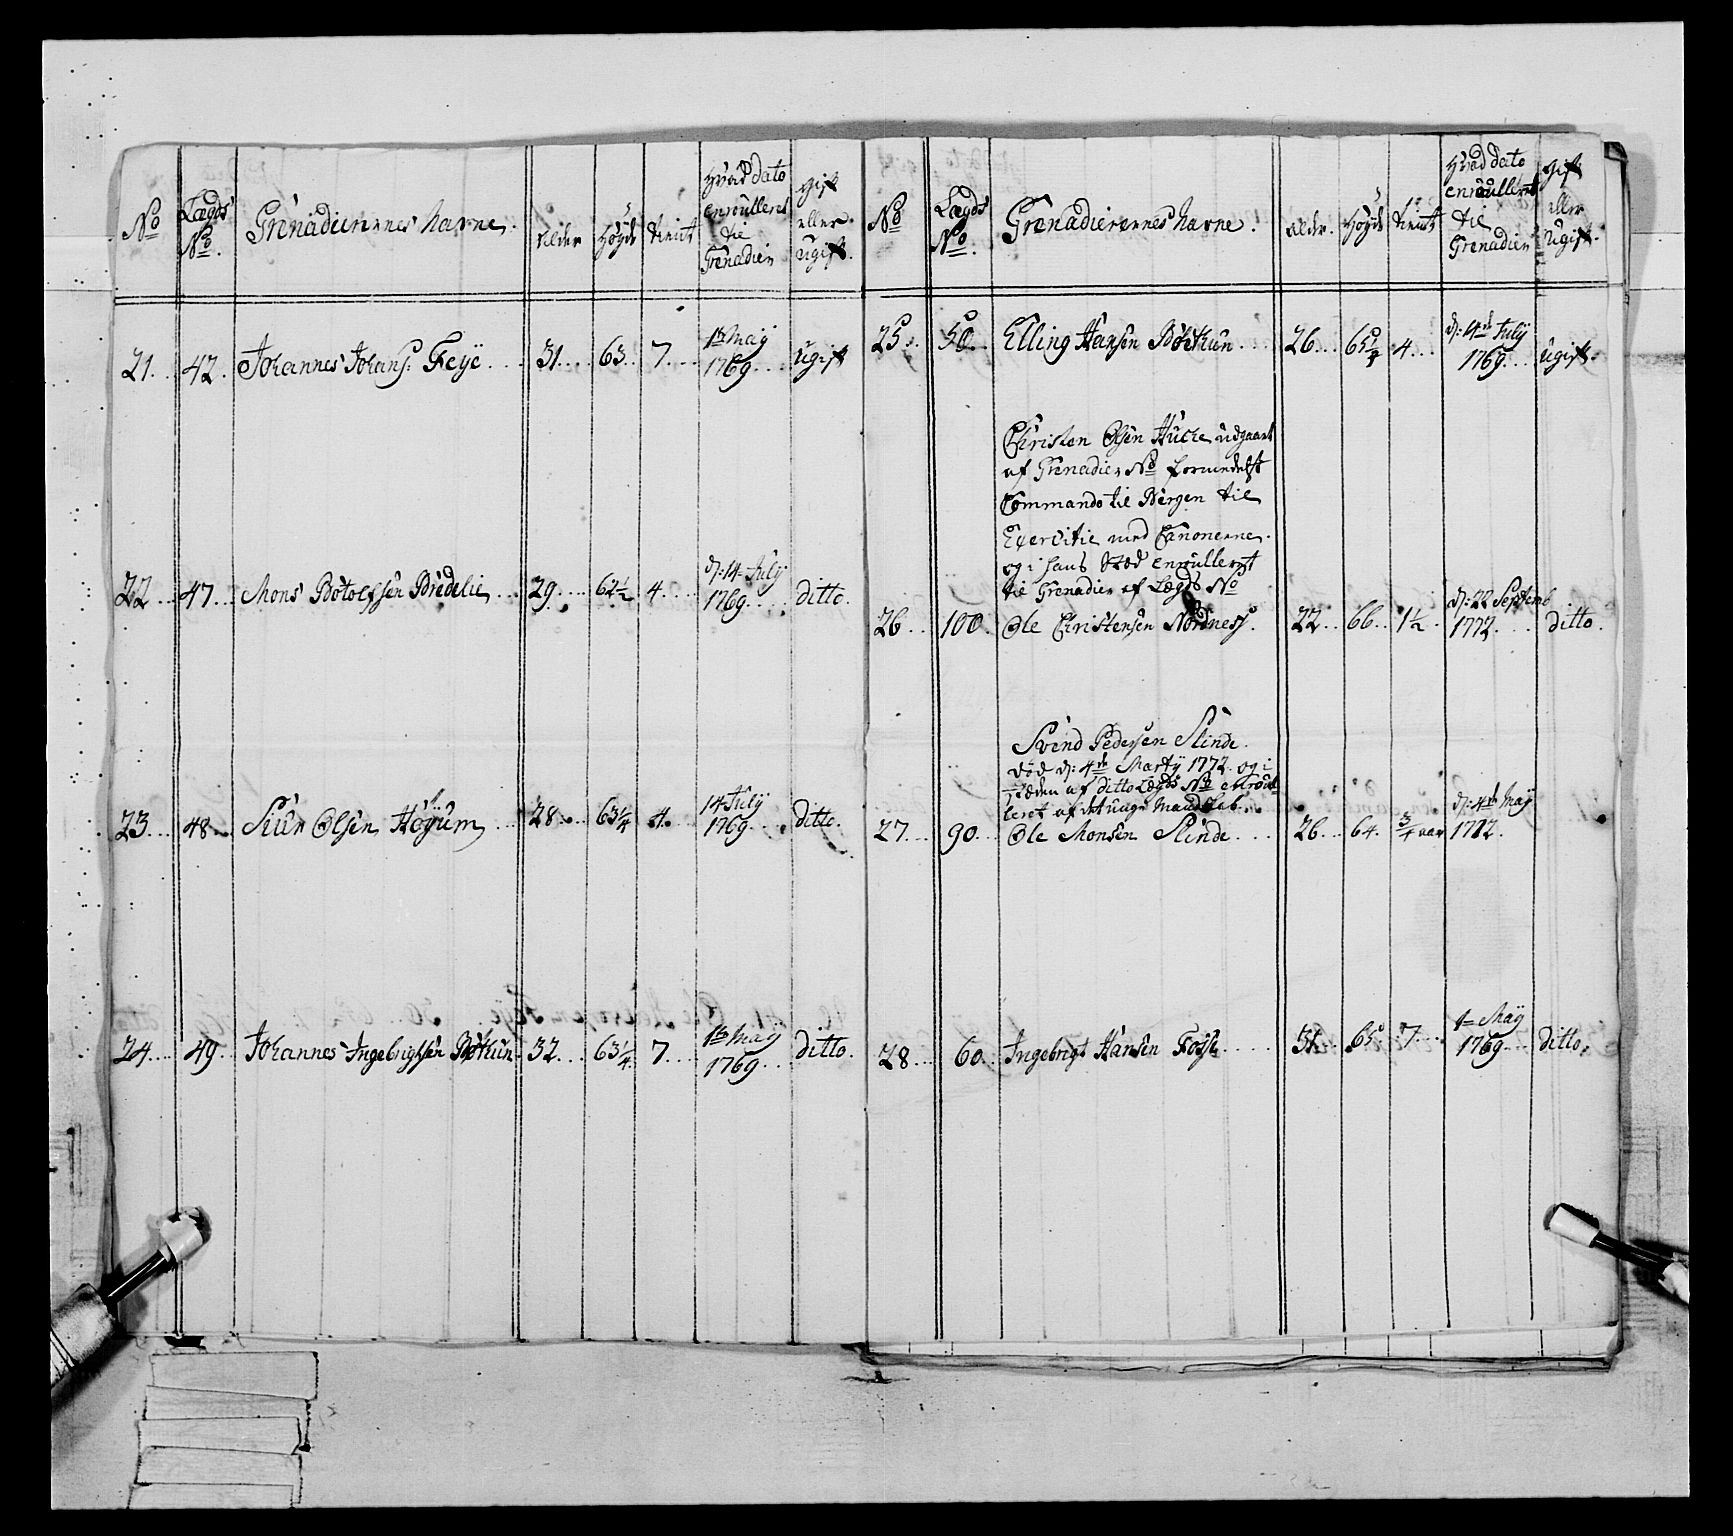 No | Lægds No. | Grenadierernes Navne. | Alder | Höyde | tient | Hvad dato enroulleret til Grenadier | Gift eller ugift.
21. | 42. | Johannes Johans: Feÿe | 31. | 63. | 7. | 1te Maÿ 1769. | ugift
22. | 47. | Mons Botolfsen Bredelie | 29. | 62½ | 4. | d: 14 Julÿ 1769. | ditto.
23. | 48. | Siur Olsen Høÿum | 28. | 63¼ | 4. | 14 Julÿ 1769. | ditto.
24. | 49. | Johannes Ingebrigtsen Bøthun | 32. | 63¼ | 7. | 1te Maÿ 1769. | ditto.
No | Lægds No. | Grenadierernes Navne. | Alder. | Höyde | tient | Hvad dato enroulleret til Grenadier | Gift eller ugift.
25. | 50. | Elling Hansen Bøthun | 26. | 65¼ | 4. | d: 14de Julÿ 1769. | ugift.
Christen Olsen Hucke udgaaet
af Grenadier No formedelst
Commando til Bergen til
Exercitie med Canonerne.
og i hans Sted enroulleret
til Grenadier af Lægds No
26. | 100. | Ole Christensen Nordnes. | 22. | 66. | 1½ | d: 22 Septemb 1772. | ditto.
Svend Pedersen Slinde.
død d: 4de Martÿ 1772. og i
Stæden af ditto Lægds No enroul
leret af det unge Mandskab.
27. | 90. | Ole Monsen Slinde. | 26. | 64. | ¾ aar | d: 4de Maÿ 1772.
28. | 60. | Ingebrigt Hansen Foÿe | 31. | 65. | 7. | 1te Maÿ 1769. | ditto.